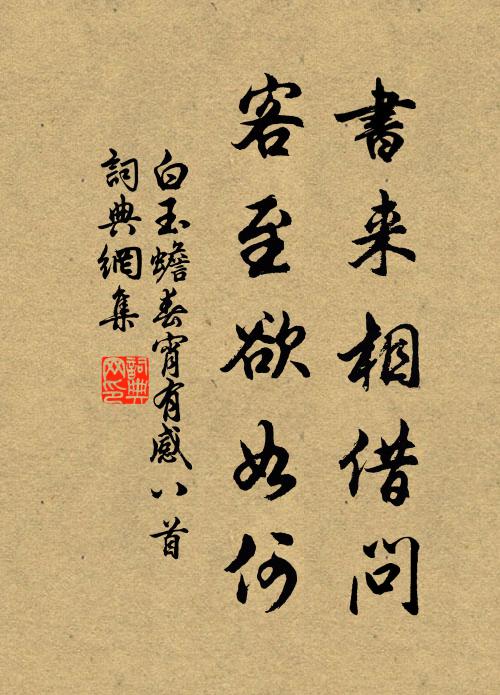 書来相借問
客至欲如何
白玉蟾春宵有感八首
詞典網集
詞典网印